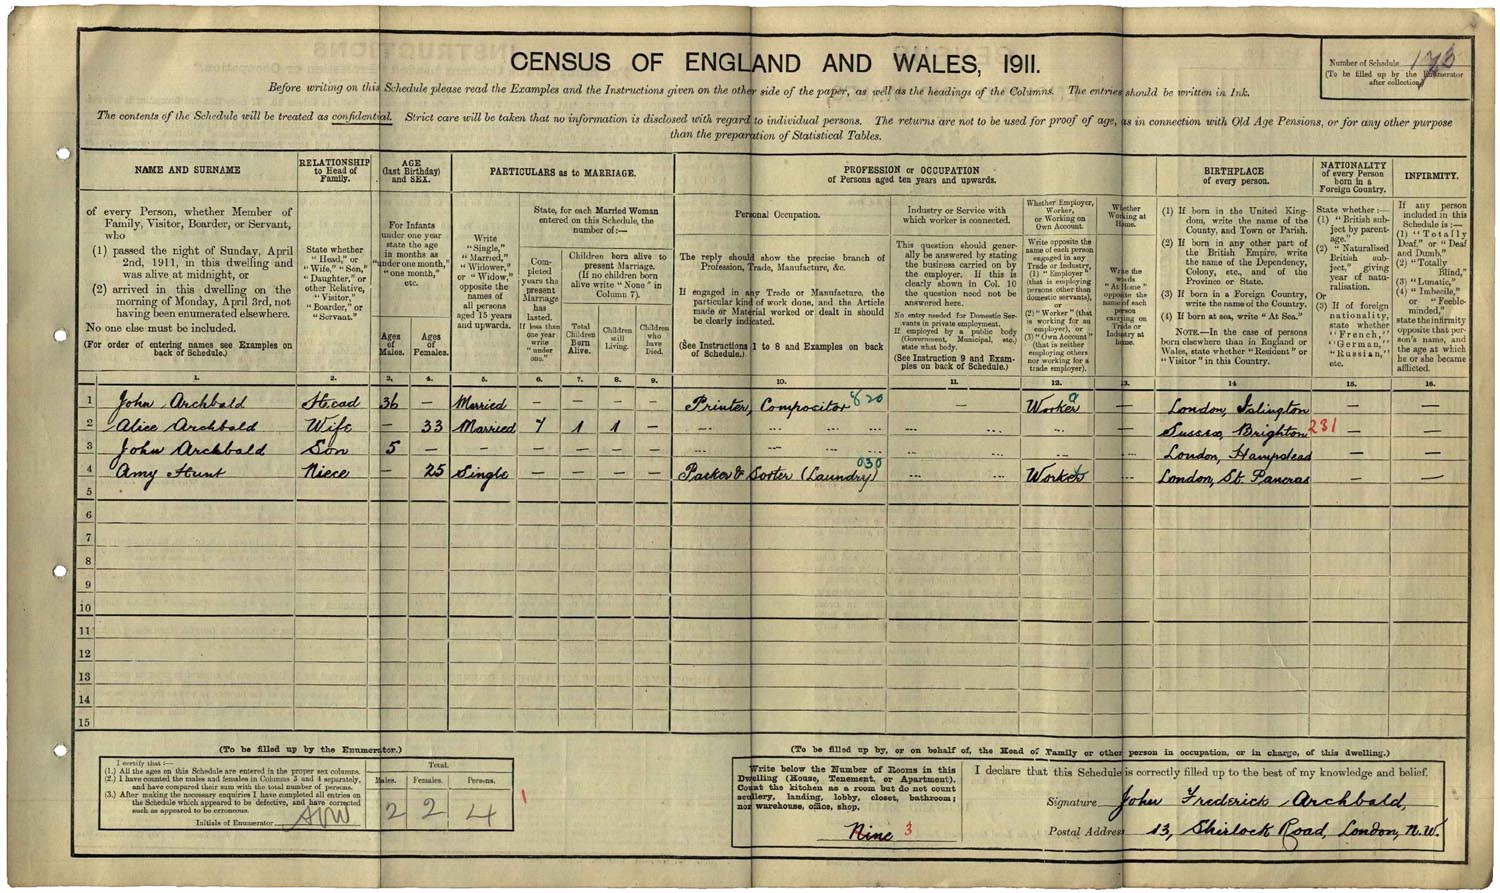 CENSUS OF ENGLAND AND WALES, 1911.
Number of Schedule
(To be filled up by the Enumerator
after collection)
Before writing on this Schedule please read the Examples and the Instructions given on the other side of the paper, as well as the headings of the Columns. The entries should be written in Ink.
The contents of the Schedule will be treated as confidential. Strict care will be taken that no information is disclosed with regard to individual persons. The returns are not to be used for proof of age, as in connection with Old Age Pensions, or for any other purpose
than the preparation of Statistical Tables.
NAME AND SURNAME
of every Person, whether Member of
Family, Visitor, Boarder, or Servant,
who
(1) passed the night of Sunday, April
2nd, 1911, in this dwelling and
was alive at midnight, or
(2) arrived in this dwelling on the
morning of Monday, April 3rd, not
having been enumerated elsewhere.
No one else must be included.
(For order of entering names see Examples on
back of Schedule.)
RELATIONSHIP
to Head of
Family.
State whether
"Head," or
"Wife," "Son,"
"Daughter," or
other Relative,
"Visitor,"
"Boarder," or
"Servant."
AGE
(last Birthday)
and SEX.
For Infants
under one year
state the age
in months as
"under one month,"
"one month,"
etc.
Ages
of
Males.
Ages
of
Females.
PARTICULARS as to MARRIAGE.
Write
"Single,"
"Married,"
"Widower,"
or "Widow,"
opposite the
names of
all persons
aged 15 years
and upwards.
State, for each Married Woman
entered on this Schedule, the
number of:—
Completed
years the
present
Marriage
has
lasted.
If less than
one year
write
"under
one."
Children born alive to
present Marriage.
(If no children born
alive write "None" in
Column 7).
Total
Children
Born
Alive.
Children
still
Living.
Children
who
have
Died.
PROFESSION or OCCUPATION
of Persons aged ten years and upwards.
Personal Occupation.
The reply should show the precise branch of
Profession, Trade, Manufacture, &c.
If engaged in any Trade or Manufacture, the
particular kind of work done, and the Article
made or Material worked or dealt in should
be clearly indicated.
(See Instructions 1 to 8 and Examples on back
of Schedule.)
Industry or Service with
which worker is connected.
This question should generally
be answered by stating
the business carried on by
the employer. If this is
clearly shown in Col. 10
the question need not be
answered here.
No entry needed for Domestic Servants
in private employment.
If employed by a public body
(Government, Municipal, etc.)
state what body.
(See Instruction 9 and Examples
on back of Schedule.)
Whether Employer,
Worker,
or Working on
Own Account.
Write opposite the
name of each person
engaged in any
Trade or Industry,
(1) "Employer"
(that is employing
persons other than
domestic servants),
or
(2) "Worker" (that
is working for an
employer), or
(3) "Own Account"
(that is neither
employing others
nor working for a
trade employer).
Whether
Working at
Home.
Write the
words
"At Home"
opposite the
name of each
person
carrying on
Trade or
Industry at
home.
BIRTHPLACE
of every person.
(1) If born in the United Kingdom,
write the name of the
County, and Town or Parish.
(2) If born in any other part of
the British Empire, write
the name of the Dependency,
Colony, etc., and of the
Province or State.
(3) If born in a Foreign Country,
write the name of the Country.
(4) If born at sea, write "At Sea."
NOTE.—In the case of persons
born elsewhere than in England or
Wales, state whether "Resident" or
"Visitor" in this Country.
NATIONALITY
of every Person
born in a
Foreign Country.
State whether:—
(1) "British subject
by parentage."
(2) "Naturalised
British
subject," giving
year of naturalisation.
Or
(3) If of foreign
nationality,
state whether
"French,"
"German,"
"Russian,"
etc.
INFIRMITY.
If any person
included in this
Schedule is:—
(1) "Totally
Deaf," or "Deaf
and Dumb."
(2) "Totally
Blind,"
(3) "Lunatic,"
(4) "Imbecile,"
or "Feeble-minded,"
state the infirmity
opposite that person's
name, and
the age at which
he or she became
afflicted.
1. 2. 3. 4. 5. 6. 7. 8. 9. 10. 11. 12. 13. 14 15. 16.
1 John Archbald Head 36 — Married — — — — Printer, Compositor 820 — Worker — London, Islington — —
2 Alice Archbald Wife — 33 Married 7 1 1 — Sussex, Brighton 231 — —
3 John Archbald Son 5 — London, Hampstead — —
4 Amy Hunt Niece — 25 Single — — — — Packer & Sorter (Laundry) 030 Worker London, St. Pancras — —
5
6
7
8
9
10
11
12
13
14
15
(To be filled up by the Enumerator.)
I certify that:—
(1.) All the ages on this Schedule are entered in the proper sex columns.
(2.) I have counted the males and females in Columns 3 and 4 separately,
and have compared their sum with the total number of persons.
(3.) After making the necessary enquiries I have completed all entries on
the Schedule which appeared to be defective, and have corrected
such as appeared to be erroneous.
Initials of Enumerator
Total.
Males. Females. Persons.
2 2 4
(To be filled up by, or on behalf of, the Head of Family or other person in occupation, or in charge, of this dwelling.)
Write below the Number of Rooms in this
Dwelling (House, Tenement, or Apartment).
Count the kitchen as a room but do not count
scullery, landing, lobby, closet, bathroom;
nor warehouse, office, shop.
Nine 3
I declare that this Schedule is correctly filled up to the best of my knowledge and belief.
Signature John Frederick Archbald,
Postal Address 13, Shirlock Road, London, N.W.